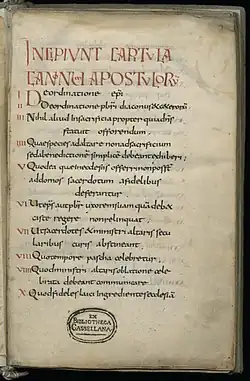 INCIPIUNT CAPITULA
CANONU APOSTULORU
I Deordinatione epi
II Deordinatione pbri diaconus & ceteroru
III Nihil aliud insacrificia propter quod dns
statuit offerendum
IIII Quae species adaltare nonadsacrificium
sedabenedictione simplice debeant exhiberi
V Quodea quae inecclesiis offerri nonposst
addomos sacerdotum afidelibus
deferantur
VI Uteps aut pbr uxorem suam quam debet
caste regere nonrelinquat
VII Utsacerdotes & ministri altaris secu
laribus curis abstineant
VIII Quotempore pascha celebretur
VIIII Quodministri altaris oblatione cele
brata debeant communicare
X Quodfideles laici ingredientes ecclesia
EX
BIBLIOTHECA
CASSELLANA